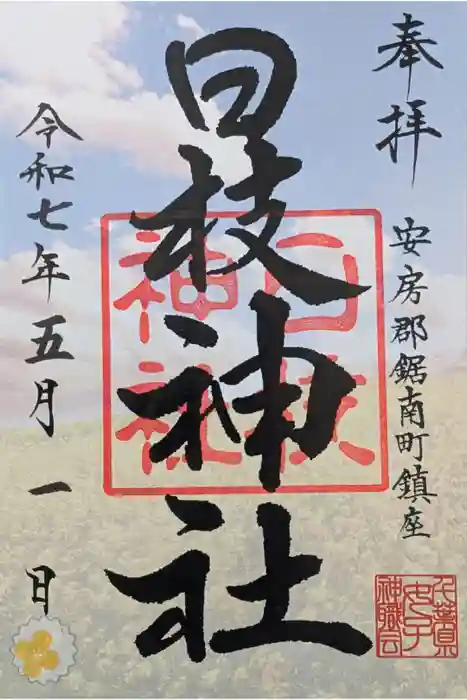 奉拝
安房郡鋸南町鎮座
日枝神社
日枝神社
令和七年五月一日
千葉県女子神職会